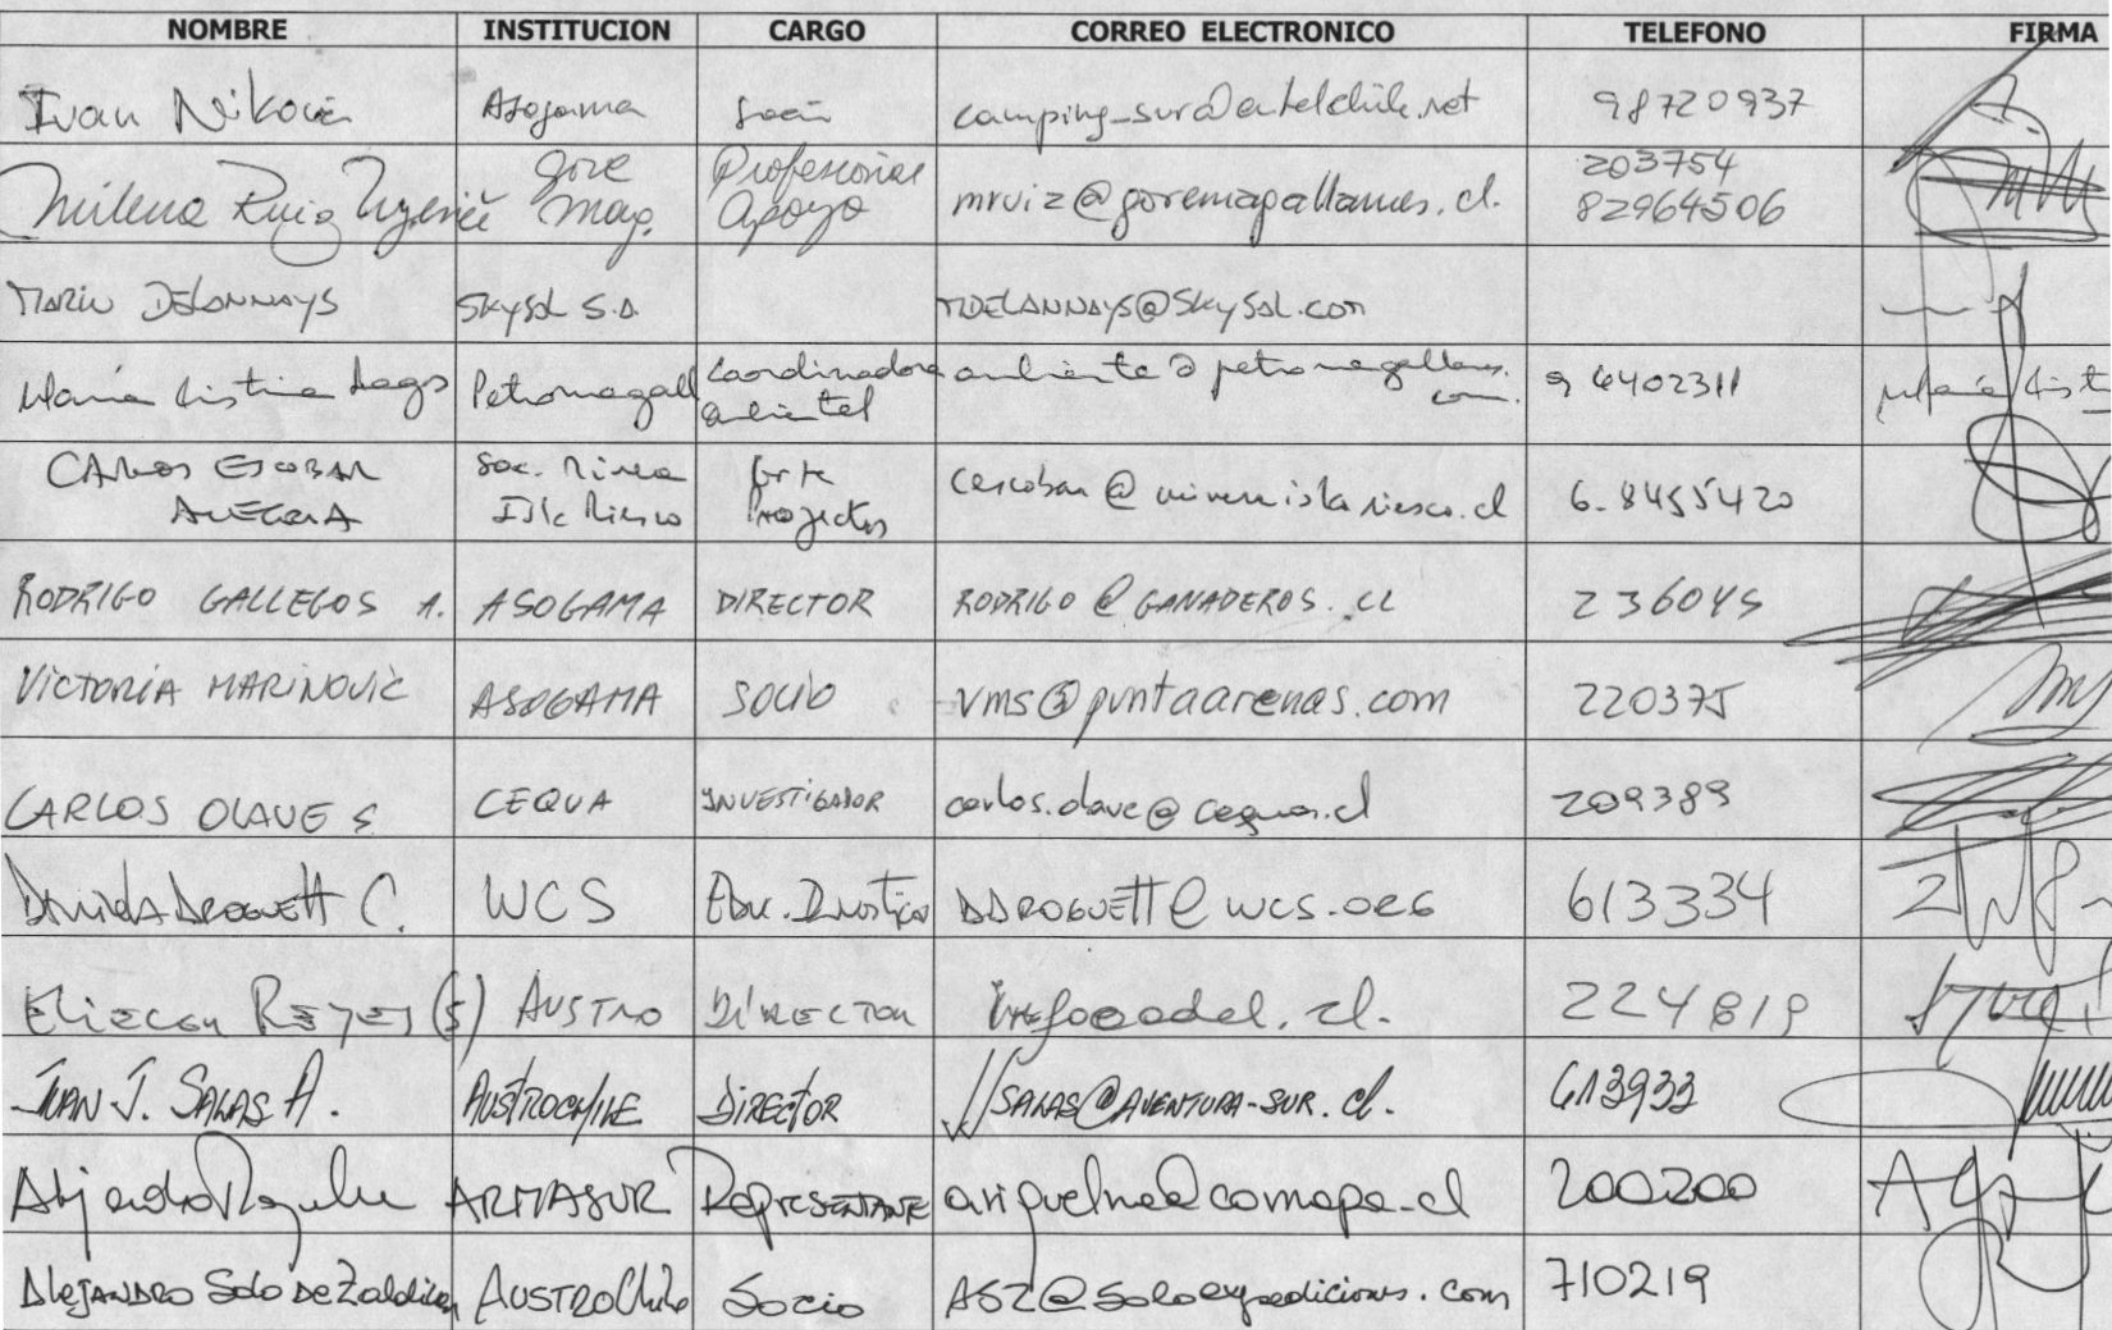 NOMBRE INSTITUCION CARGO CORREO ELECTRONICO TELEFONO FIRMA
Ivan Nikovic Asogama Socio camping_sur@entelchile.net 98720937
Milena Ruiz Gore Mag. Profesional Apoyo mruiz@goremagallanes.cl. 203754 82964506
MARIN DELANNAYS SKYSAL S.A. MDELANNAYS@SkySal.com
María Cristina Lagos Petromagall Coordinadora ambiental ambiente@petromagallanes.com. 9 6402311
CARLOS ESCOBAR ALEGRIA Soc. Minera Isla Riesco Grte Proyectos cescobar@mineraislariesco.cl 6-8455420
RODRIGO GALLEGOS A. ASOGAMA DIRECTOR RODRIGO@GANADEROS.CL 236045
VICTORIA MARINOVIC ASOGAMA SOCIO vms@puntaarenas.com 220375
CARLOS OLAVE S CEQUA INVESTIGADOR carlos.olave@cequa.cl 209389
DANIELA DROGUETT C. WCS DDROGUETT@WCS.ORG 613334
Eliecer REYES (S) AUSTRO DIRECTOR 224819
JUAN J. SALAS A. AUSTROCHILE DIRECTOR JJSALAS@AVENTURA-SUR.cl. 613933
Alejandro Riquelme ARMASUR REPRESENTANTE ariquelme@comapa.cl 200200
Alejandro Solo de Zaldivar AUSTROChile Socio ASZ@soloexpediciones.com 710219